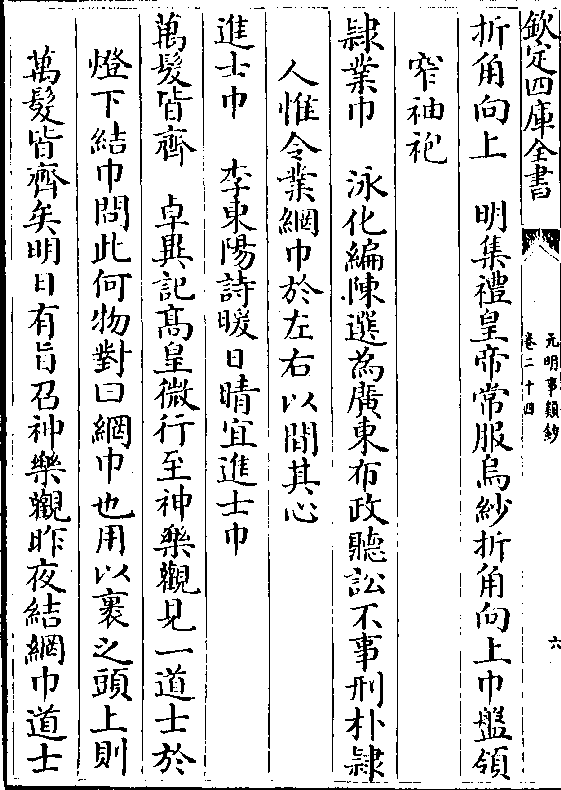 欽定四庫全書
元明事類鈔
卷二十四
六
折角向上　明集禮皇帝常服烏紗折角向上巾盤領
窄袖袍
隸業巾　泳化編陳選為廣東布政聽訟不事刑朴隸
人惟令業網巾於左右以間其心
進士巾　李東陽詩暖日晴宜進士巾
萬髮皆齊　卓異記髙皇微行至神樂觀見一道士於
燈下結巾問此何物對曰網巾也用以裹之頭上則
萬髮皆齊矣明日有旨召神樂觀昨夜結網巾道士